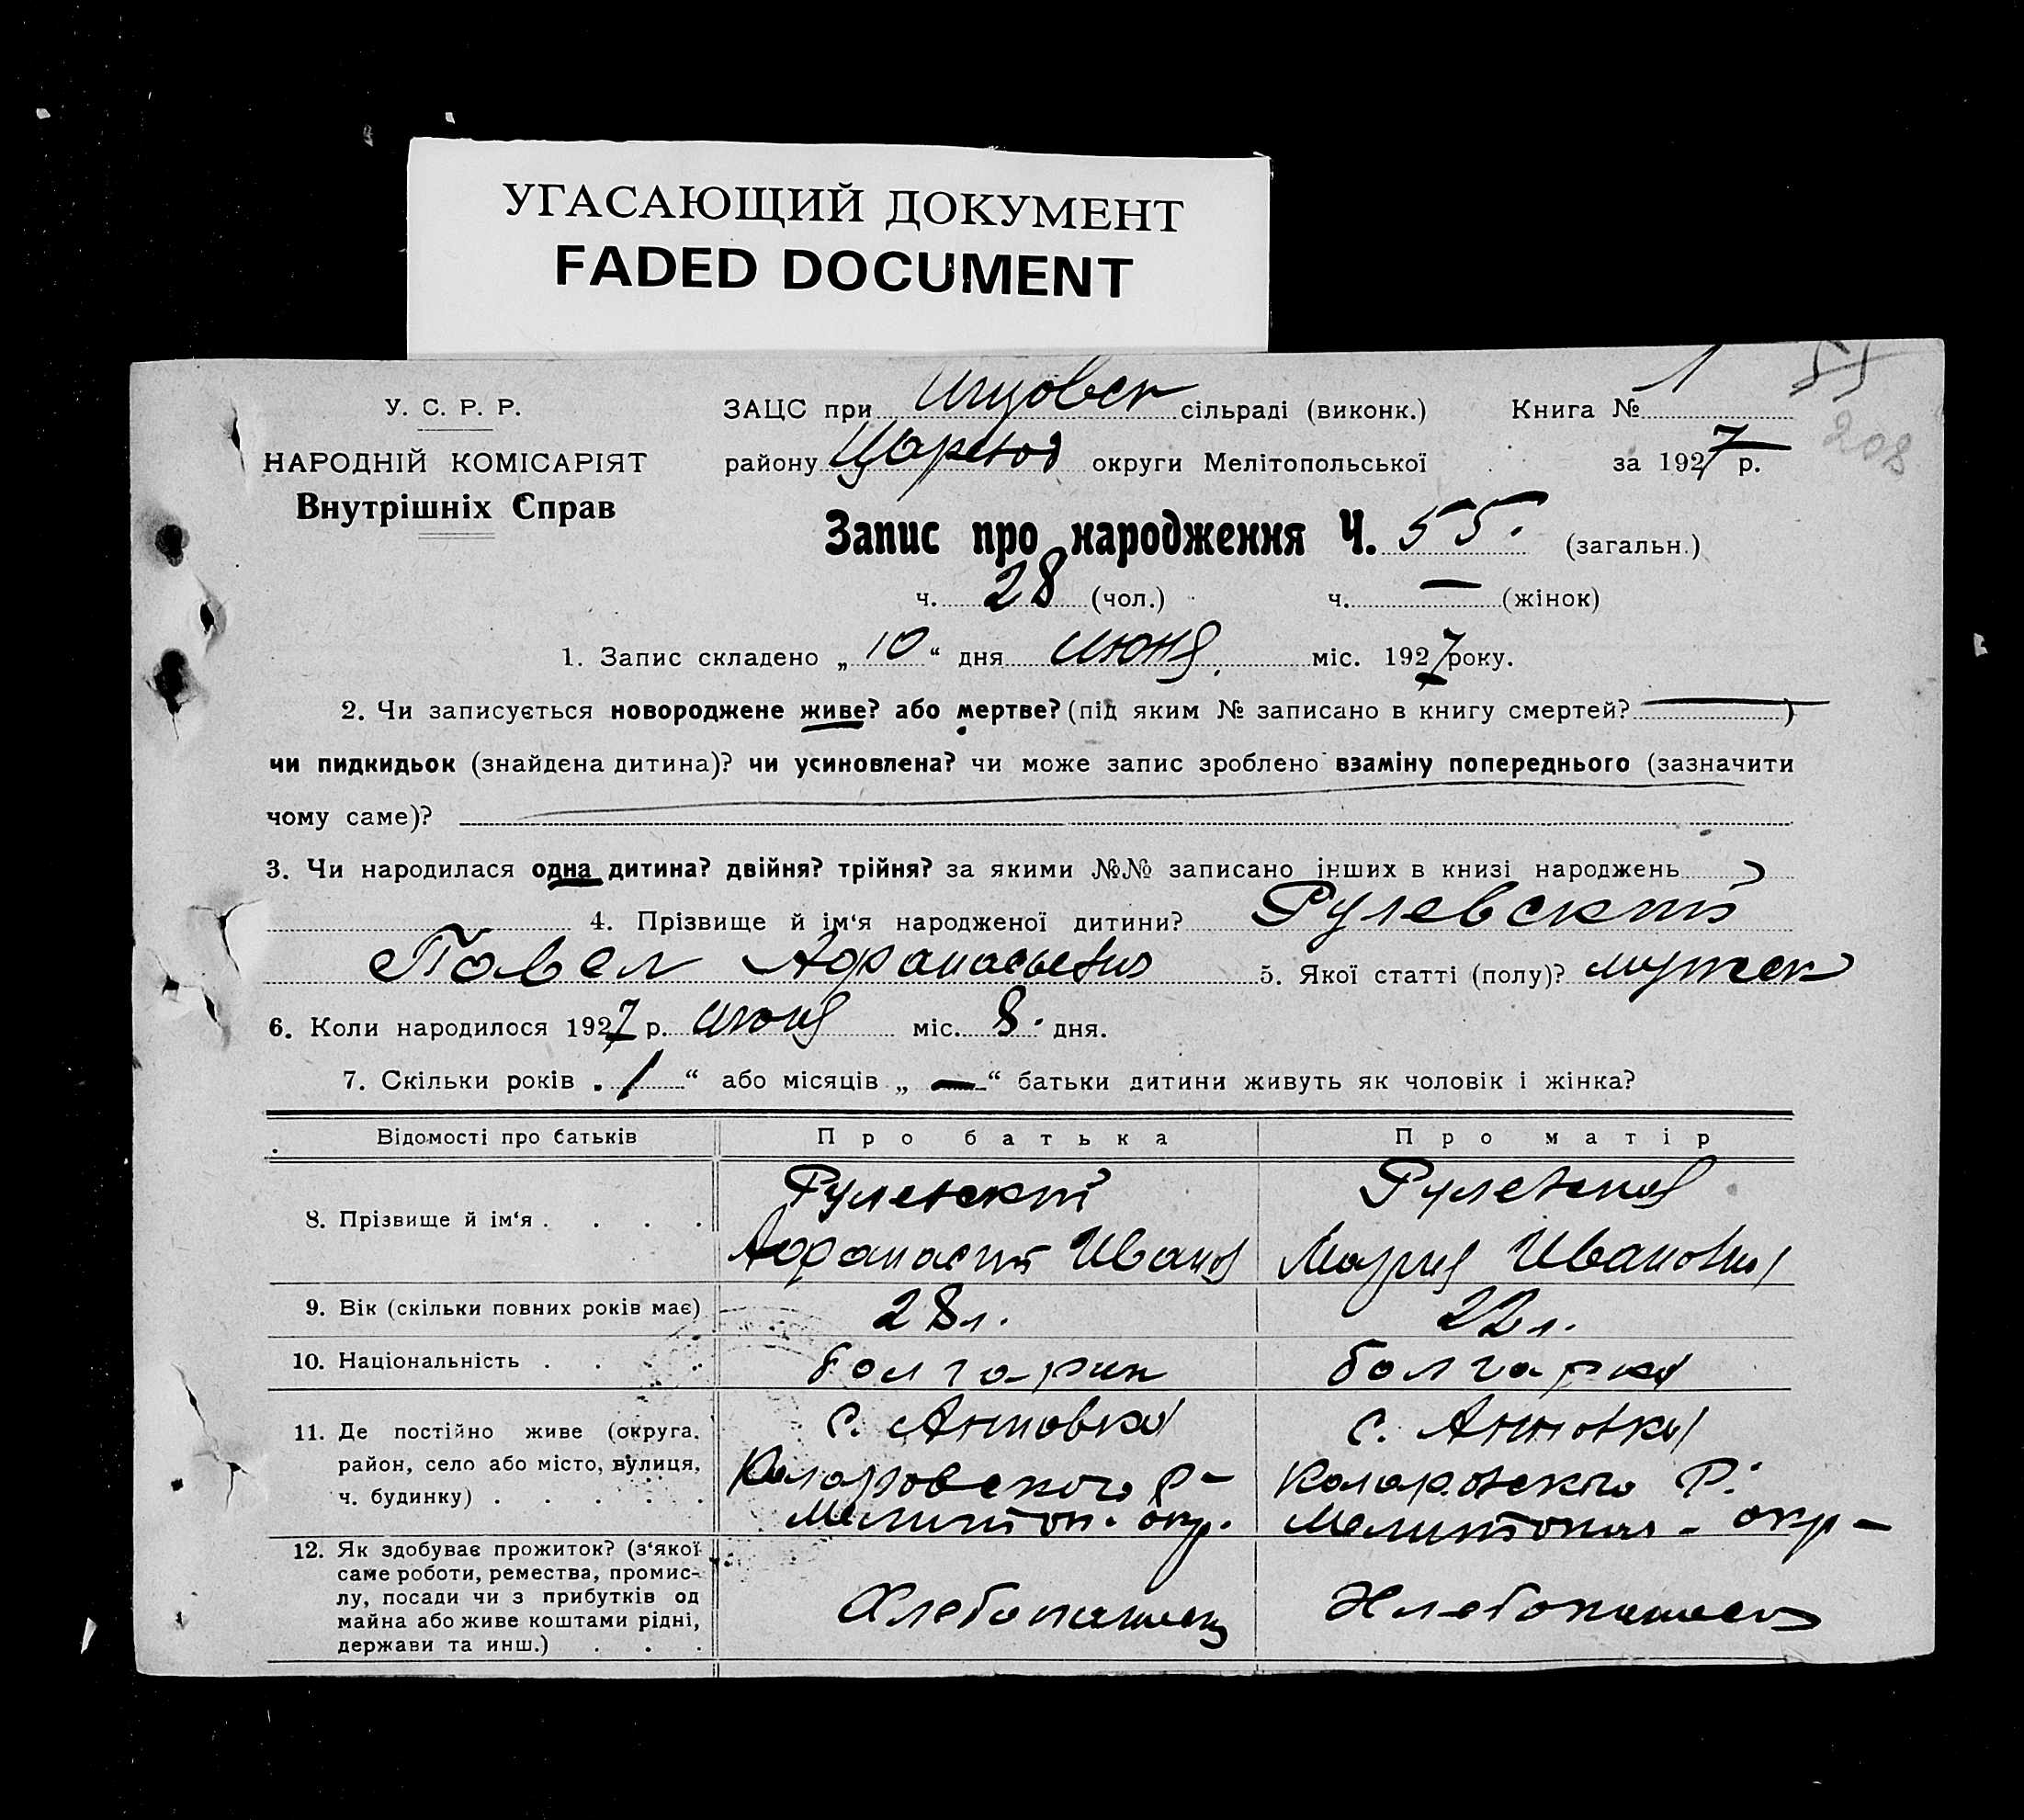 УГАСАЮЩИЙ ДОКУМЕНТ
FADED DOCUMENT
У. С. Р. Р.
НАРОДНІЙ КОМІСАРІЯТ
Внутрішніх Справ
ЗАЦС при сільраді (виконк.) Книга № 1
55
208
району округи Мелітопольської за 1927 р.
Запис про народження Ч. 55. (загальн.)
ч. 28 (чол.) ч. — (жінок)
1. Запис складено „ 10 “ дня июня міс. 1927 року.
2. Чи записується новороджене живе? або мертве? (під яким № записано в книгу смертей? — )
чи пидкидьок (знайдена дитина)? чи усиновлена? чи може запис зроблено взаміну попереднього (зазначити
чому саме)?
3. Чи народилася одна дитина? двійня? трійня? за якими №№ записано інших в книзі народжень
4. Прізвище й ім‘я народженої дитини? Рулевский
Павел Афанасьевич 5. Якої статті (полу)? мужск
6. Коли народилося 1927 р. июня міс. 8. дня.
7. Скільки років „ 1 “ або місяців „ — “ батьки дитини живуть як чоловік і жінка?
Відомості про батьків Про батька Про матір
8. Прізвище й ім‘я . . . . Рулевский Рулевская
Афанасий Иванов Мария Ивановна
9. Вік (скільки повних років має) 28 л. 22 л.
10. Національність . . . болгарин болгарка
11. Де постійно живе (округа, район, село або місто, вулиця, ч. будинку) . . . . .
с. Анновка с. Анновка
Коларовского р- Коларовского Р.
Мелитоп. окр. Мелитопол- окр-
12. Як здобуває прожиток? (з‘якої
саме роботи, ремества, промис-
лу, посади чи з прибутків од
майна або живе коштами рідні,
держави та инш.) . . .
Хлебопашец Хлебопашец